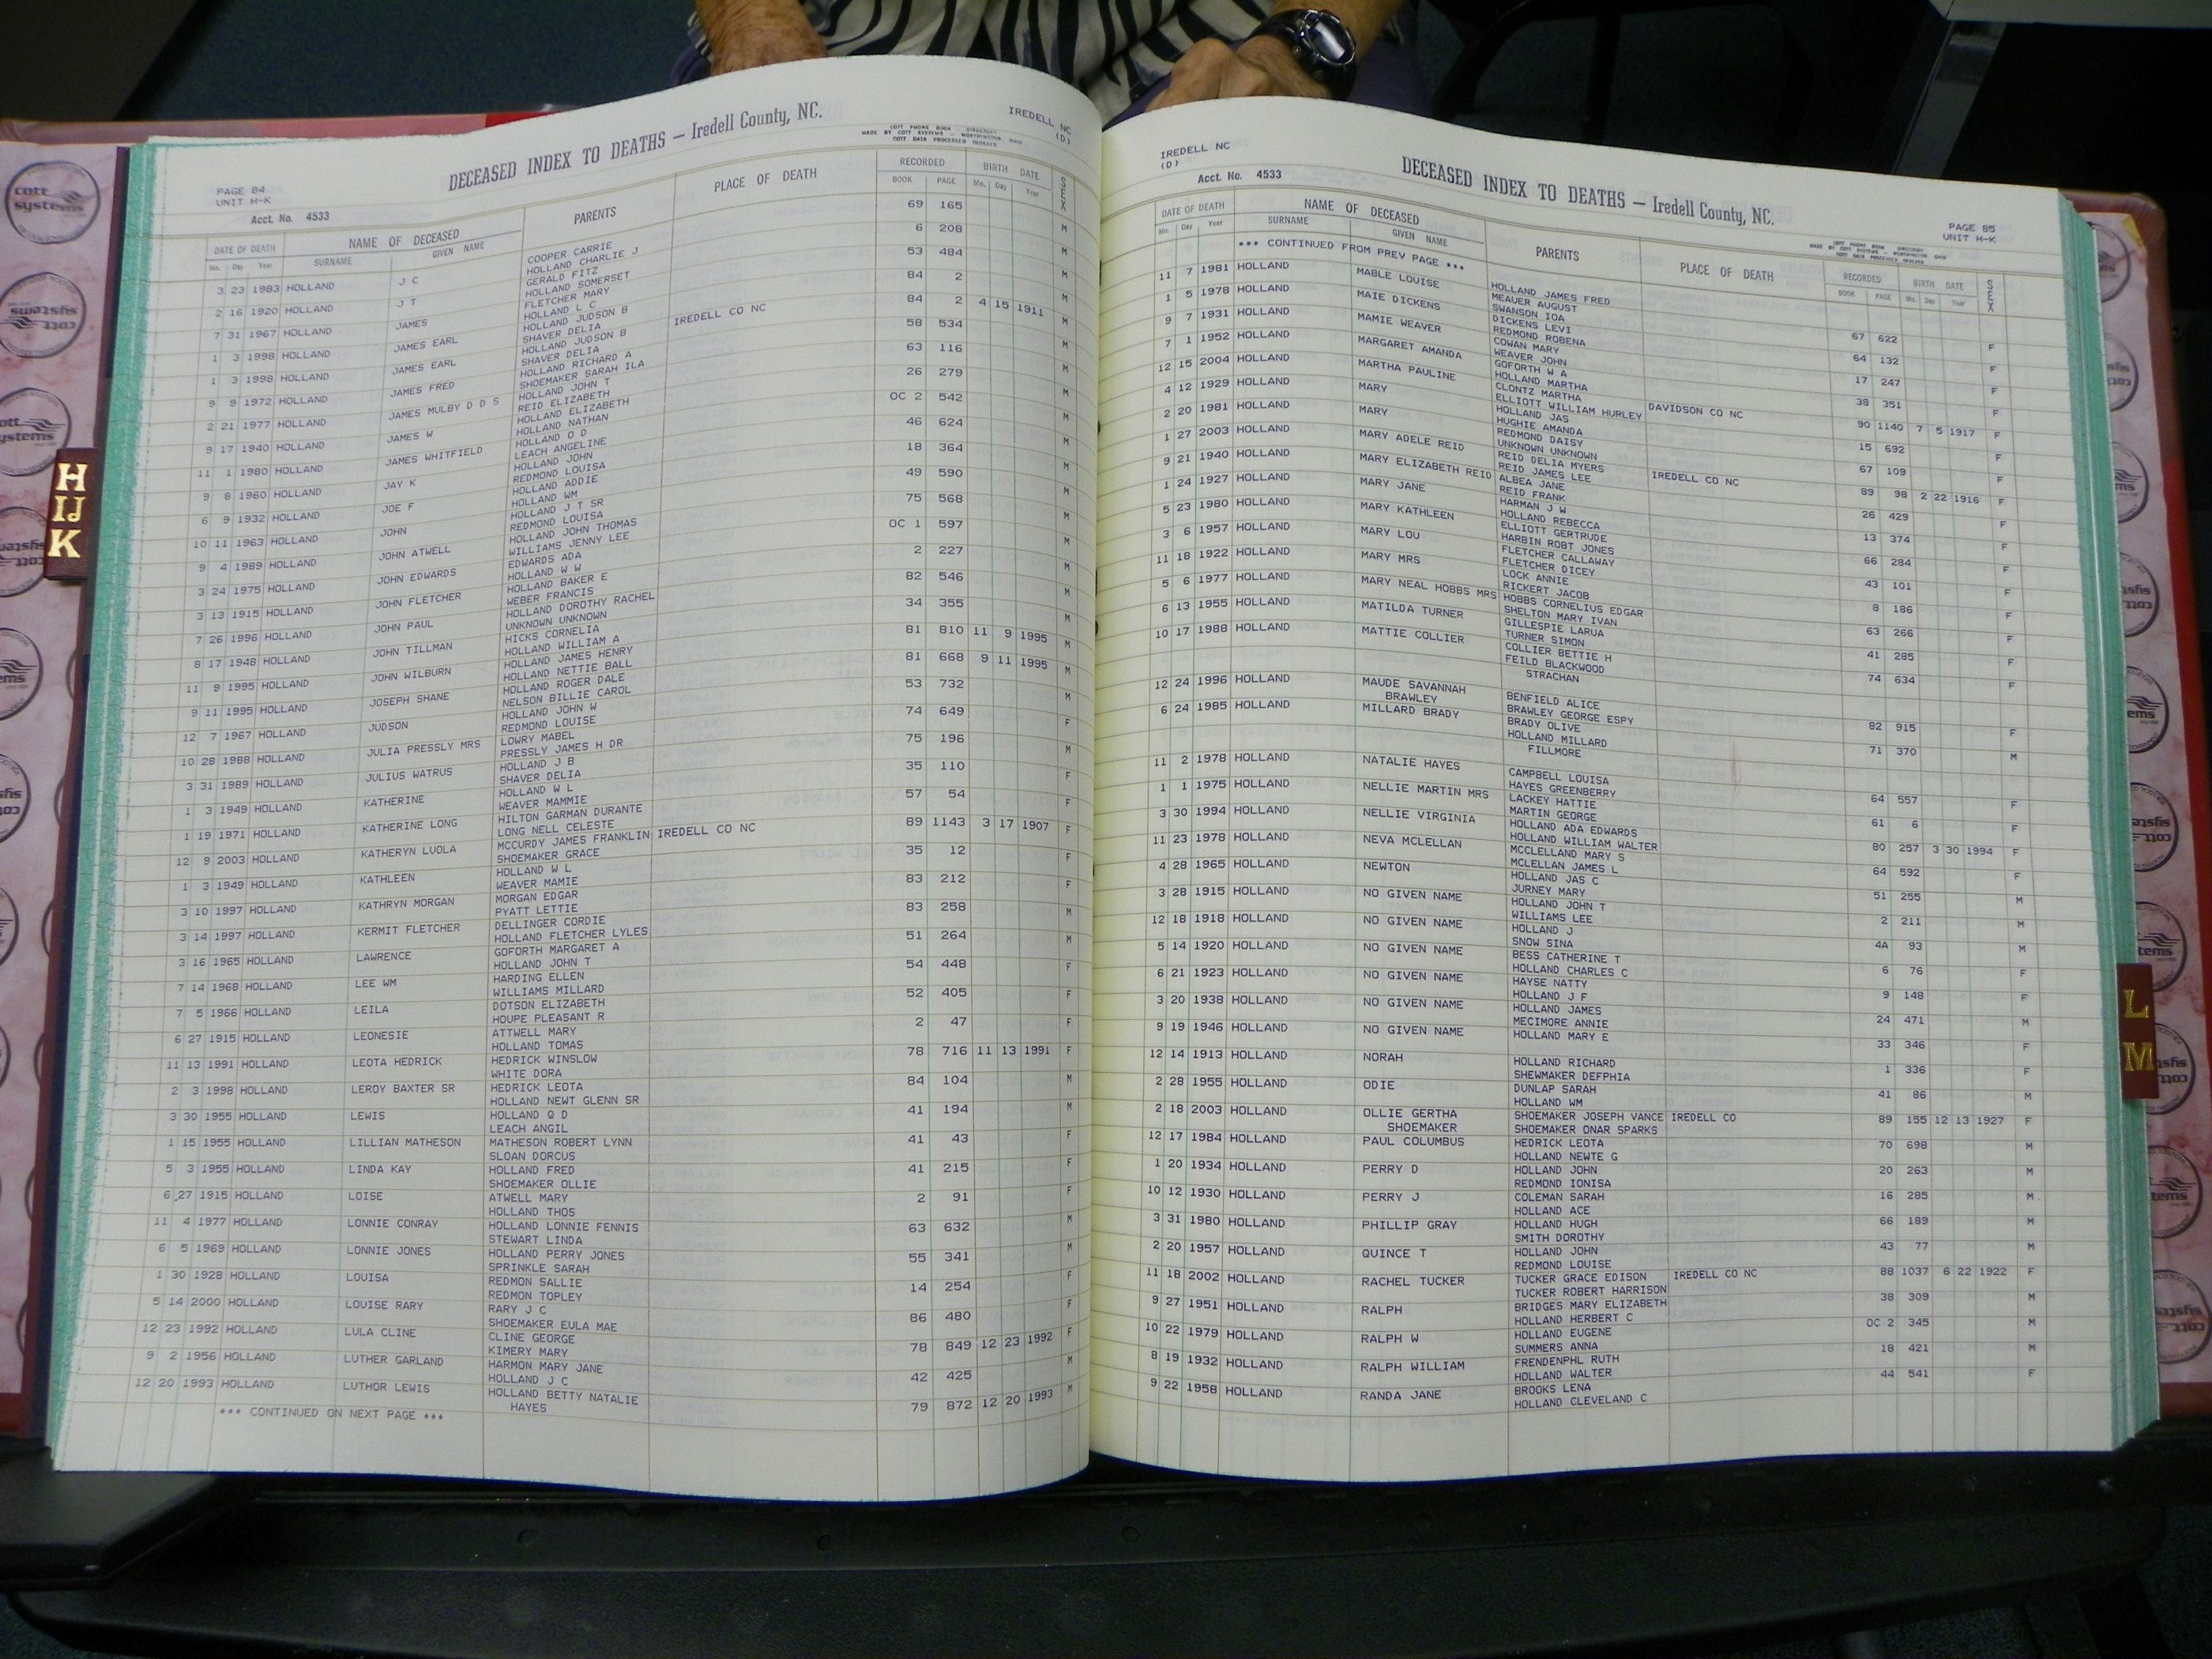 PAGE 84
UNIT H-K
DECEASED INDEX TO DEATHS — Iredell County, NC.
IREDELL NC
(D)
COTT PHONE BOOK - DIRECTORY
MADE BY COTT SYSTEMS - WORTHINGTON, OHIO
COTT DATA PROCESSED INDEXES
Acct. No. 4533
DATE OF DEATH NAME OF DECEASED PARENTS PLACE OF DEATH RECORDED BIRTH DATE SEX
Mo. Day Year SURNAME GIVEN NAME BOOK PAGE Mo. Day Year
3 23 1983 HOLLAND J C COOPER CARRIE 69 165 M
HOLLAND CHARLIE J
2 16 1920 HOLLAND J T GERALD FITZ 6 208 M
HOLLAND SOMERSET
7 31 1967 HOLLAND JAMES FLETCHER MARY 53 484 M
HOLLAND L C
1 3 1998 HOLLAND JAMES EARL HOLLAND JUDSON B 84 2 M
SHAVER DELIA
1 3 1998 HOLLAND JAMES EARL HOLLAND JUDSON B IREDELL CO NC 84 2 4 15 1911 M
SHAVER DELIA
9 9 1972 HOLLAND JAMES FRED HOLLAND RICHARD A 58 534 M
SHOEMAKER SARAH ILA
2 21 1977 HOLLAND JAMES MULBY D D S HOLLAND JOHN T 63 116 M
REID ELIZABETH
9 17 1940 HOLLAND JAMES W HOLLAND ELIZABETH 26 279 M
HOLLAND NATHAN
11 1 1980 HOLLAND JAMES WHITFIELD HOLLAND O D OC 2 542 M
LEACH ANGELINE
9 8 1960 HOLLAND JAY K HOLLAND JOHN 46 624 M
REDMOND LOUISA
6 9 1932 HOLLAND JOE F HOLLAND ADDIE 18 364 M
HOLLAND WM
10 11 1963 HOLLAND JOHN HOLLAND J T SR 49 590 M
REDMOND LOUISA
9 4 1989 HOLLAND JOHN ATWELL HOLLAND JOHN THOMAS 75 568 M
WILLIAMS JENNY LEE
3 24 1975 HOLLAND JOHN EDWARDS EDWARDS ADA OC 1 597 M
HOLLAND W W
3 13 1915 HOLLAND JOHN FLETCHER HOLLAND BAKER E 2 227 M
WEBER FRANCIS
7 26 1996 HOLLAND JOHN PAUL HOLLAND DOROTHY RACHEL 82 546 M
UNKNOWN UNKNOWN
8 17 1948 HOLLAND JOHN TILLMAN HICKS CORNELIA 34 355 M
HOLLAND WILLIAM A
11 9 1995 HOLLAND JOHN WILBURN HOLLAND JAMES HENRY 81 810 11 9 1995 M
HOLLAND NETTIE BALL
9 11 1995 HOLLAND JOSEPH SHANE HOLLAND ROGER DALE 81 668 9 11 1995 M
NELSON BILLIE CAROL
12 7 1967 HOLLAND JUDSON HOLLAND JOHN W 53 732 M
REDMOND LOUISE
10 28 1988 HOLLAND JULIA PRESSLY MRS LOWRY MABEL 74 649 F
PRESSLY JAMES H DR
3 31 1989 HOLLAND JULIUS WATRUS HOLLAND J B 75 196 M
SHAVER DELIA
1 3 1949 HOLLAND KATHERINE HOLLAND W L 35 110 F
WEAVER MAMMIE
1 19 1971 HOLLAND KATHERINE LONG HILTON GARMAN DURANTE 57 54 F
LONG NELL CELESTE
12 9 2003 HOLLAND KATHERYN LUOLA MCCURDY JAMES FRANKLIN IREDELL CO NC 89 1143 3 17 1907 F
SHOEMAKER GRACE
1 3 1949 HOLLAND KATHLEEN HOLLAND W L 35 12 F
WEAVER MAMIE
3 10 1997 HOLLAND KATHRYN MORGAN MORGAN EDGAR 83 212 F
PYATT LETTIE
3 14 1997 HOLLAND KERMIT FLETCHER DELLINGER CORDIE 83 258 M
HOLLAND FLETCHER LYLES
3 16 1965 HOLLAND LAWRENCE GOFORTH MARGARET A 51 264 M
HOLLAND JOHN T
7 14 1968 HOLLAND LEE WM HARDING ELLEN 54 448 F
WILLIAMS MILLARD
7 5 1966 HOLLAND LEILA DOTSON ELIZABETH 52 405 F
HOUPE PLEASANT R
6 27 1915 HOLLAND LEONESIE ATTWELL MARY 2 47 F
HOLLAND TOMAS
11 13 1991 HOLLAND LEOTA HEDRICK HEDRICK WINSLOW 78 716 11 13 1991 F
WHITE DORA
2 3 1998 HOLLAND LEROY BAXTER SR HEDRICK LEOTA 84 104 M
HOLLAND NEWT GLENN SR
3 30 1955 HOLLAND LEWIS HOLLAND O D 41 194 M
LEACH ANGIL
1 15 1955 HOLLAND LILLIAN MATHESON MATHESON ROBERT LYNN 41 43 F
SLOAN DORCUS
5 3 1955 HOLLAND LINDA KAY HOLLAND FRED 41 215 F
SHOEMAKER OLLIE
6 27 1915 HOLLAND LOISE ATWELL MARY 2 91 F
HOLLAND THOS
11 4 1977 HOLLAND LONNIE CONRAY HOLLAND LONNIE FENNIS 63 632 M
STEWART LINDA
6 5 1969 HOLLAND LONNIE JONES HOLLAND PERRY JONES 55 341 M
SPRINKLE SARAH
1 30 1928 HOLLAND LOUISA REDMON SALLIE 14 254 F
REDMON TOPLEY
5 14 2000 HOLLAND LOUISE RARY RARY J C 86 480 F
SHOEMAKER EULA MAE
12 23 1992 HOLLAND LULA CLINE CLINE GEORGE 78 849 12 23 1992 F
KIMERY MARY
9 2 1956 HOLLAND LUTHER GARLAND HARMON MARY JANE 42 425 M
HOLLAND J C
12 20 1993 HOLLAND LUTHOR LEWIS HOLLAND BETTY NATALIE 79 872 12 20 1993 M
HAYES
*** CONTINUED ON NEXT PAGE ***
IREDELL NC
(D)
DECEASED INDEX TO DEATHS — Iredell County, NC.
PAGE 85
UNIT H-K
Acct. No. 4533
COTT PHONE BOOK - DIRECTORY
MADE BY COTT SYSTEMS - WORTHINGTON, OHIO
COTT DATA PROCESSED INDEXES
DATE OF DEATH NAME OF DECEASED PARENTS PLACE OF DEATH RECORDED BIRTH DATE SEX
Mo. Day Year SURNAME GIVEN NAME BOOK PAGE Mo. Day Year
*** CONTINUED FROM PREV PAGE ***
11 7 1981 HOLLAND MABLE LOUISE HOLLAND JAMES FRED 67 622 F
MEAUER AUGUST
1 5 1978 HOLLAND MAIE DICKENS SWANSON IOA 64 132 F
DICKENS LEVI
9 7 1931 HOLLAND MAMIE WEAVER REDMOND ROBENA 17 247 F
COWAN MARY
WEAVER JOHN
7 1 1952 HOLLAND MARGARET AMANDA GOFORTH W A 38 351 F
HOLLAND MARTHA
12 15 2004 HOLLAND MARTHA PAULINE CLONTZ MARTHA DAVIDSON CO NC 90 1140 7 5 1917 F
ELLIOTT WILLIAM HURLEY
4 12 1929 HOLLAND MARY HOLLAND JAS 15 692 F
HUGHIE AMANDA
2 20 1981 HOLLAND MARY REDMOND DAISY 67 109 F
UNKNOWN UNKNOWN
1 27 2003 HOLLAND MARY ADELE REID REID DELIA MYERS IREDELL CO NC 89 98 2 22 1916 F
REID JAMES LEE
9 21 1940 HOLLAND MARY ELIZABETH REID ALBEA JANE 26 429 F
REID FRANK
1 24 1927 HOLLAND MARY JANE HARMAN J W 13 374 F
HOLLAND REBECCA
5 23 1980 HOLLAND MARY KATHLEEN ELLIOTT GERTRUDE 66 284 F
HARBIN ROBT JONES
3 6 1957 HOLLAND MARY LOU FLETCHER CALLAWAY 43 101 F
FLETCHER DICEY
11 18 1922 HOLLAND MARY MRS LOCK ANNIE 8 186 F
RICKERT JACOB
5 6 1977 HOLLAND MARY NEAL HOBBS MRS HOBBS CORNELIUS EDGAR 63 266 F
SHELTON MARY IVAN
6 13 1955 HOLLAND MATILDA TURNER GILLESPIE LARUA 41 285 F
TURNER SIMON
10 17 1988 HOLLAND MATTIE COLLIER COLLIER BETTIE H 74 634 F
FEILD BLACKWOOD
STRACHAN
12 24 1996 HOLLAND MAUDE SAVANNAH BENFIELD ALICE 82 915 F
BRAWLEY BRAWLEY GEORGE ESPY
6 24 1985 HOLLAND MILLARD BRADY BRADY OLIVE 71 370 M
HOLLAND MILLARD
FILLMORE
11 2 1978 HOLLAND NATALIE HAYES CAMPBELL LOUISA 64 557 F
HAYES GREENBERRY
1 1 1975 HOLLAND NELLIE MARTIN MRS LACKEY HATTIE 61 6 F
MARTIN GEORGE
3 30 1994 HOLLAND NELLIE VIRGINIA HOLLAND ADA EDWARDS 80 257 3 30 1994 F
HOLLAND WILLIAM WALTER
11 23 1978 HOLLAND NEVA MCLELLAN MCCLELLAND MARY S 64 592 F
MCLELLAN JAMES L
4 28 1965 HOLLAND NEWTON HOLLAND JAS C 51 255 M
JURNEY MARY
3 28 1915 HOLLAND NO GIVEN NAME HOLLAND JOHN T 2 211 M
WILLIAMS LEE
12 18 1918 HOLLAND NO GIVEN NAME HOLLAND J 4A 93 M
SNOW SINA
5 14 1920 HOLLAND NO GIVEN NAME BESS CATHERINE T 6 76 F
HOLLAND CHARLES C
6 21 1923 HOLLAND NO GIVEN NAME HAYSE NATTY 9 148 F
HOLLAND J F
3 20 1938 HOLLAND NO GIVEN NAME HOLLAND JAMES 24 471 M
MECIMORE ANNIE
9 19 1946 HOLLAND NO GIVEN NAME HOLLAND MARY E 33 346 F
12 14 1913 HOLLAND NORAH HOLLAND RICHARD 1 336 F
SHEWMAKER DEFPHIA
2 28 1955 HOLLAND ODIE DUNLAP SARAH 41 86 M
HOLLAND WM
2 18 2003 HOLLAND OLLIE GERTHA SHOEMAKER JOSEPH VANCE IREDELL CO 89 155 12 13 1927 F
SHOEMAKER SHOEMAKER ONAR SPARKS
12 17 1984 HOLLAND PAUL COLUMBUS HEDRICK LEOTA 70 698 M
HOLLAND NEWTE G
1 20 1934 HOLLAND PERRY D HOLLAND JOHN 20 263 M
REDMOND IONISA
10 12 1930 HOLLAND PERRY J COLEMAN SARAH 16 285 M
HOLLAND ACE
3 31 1980 HOLLAND PHILLIP GRAY HOLLAND HUGH 66 189 M
SMITH DOROTHY
2 20 1957 HOLLAND QUINCE T HOLLAND JOHN 43 77 M
REDMOND LOUISE
11 18 2002 HOLLAND RACHEL TUCKER TUCKER GRACE EDISON IREDELL CO NC 88 1037 6 22 1922 F
TUCKER ROBERT HARRISON
9 27 1951 HOLLAND RALPH BRIDGES MARY ELIZABETH 38 309 M
HOLLAND HERBERT C
10 22 1979 HOLLAND RALPH W HOLLAND EUGENE OC 2 345 M
SUMMERS ANNA
8 19 1932 HOLLAND RALPH WILLIAM FRENDENPHL RUTH 18 421 M
HOLLAND WALTER
9 22 1958 HOLLAND RANDA JANE BROOKS LENA 44 541 F
HOLLAND CLEVELAND C
H
IJ
K
L
M
cott
systems